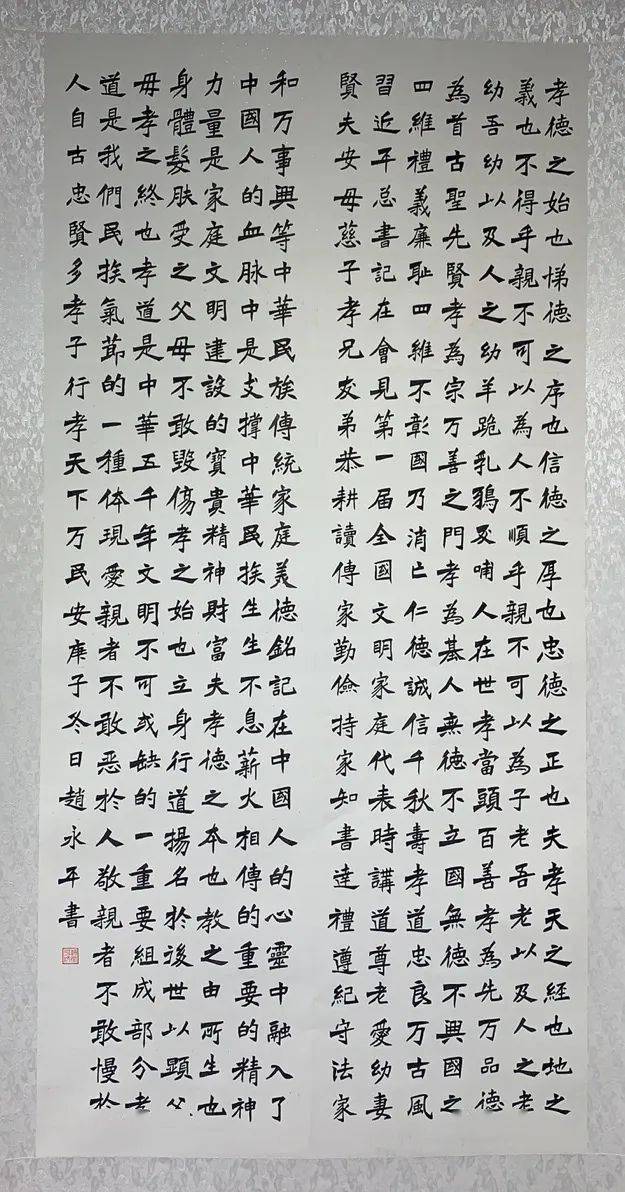 孝德之始也悌德之序也信德之厚也忠德之正也夫孝天之经也地之
義也不得乎親不可以為人不順乎親不可以為子老吾老以及人之老
幼吾幼以及人之幼羊跪乳鴉反哺人在世孝當頭百善孝為先万品德
為首古聖先賢孝為宗万善之門孝為基人無德不立國無德不興國之
四維禮義廉恥四維不彰國乃消亡仁德誠信千秋壽孝道忠良万古風
習近平总書記在會見第一届全國文明家庭代表時講道尊老愛幼妻
賢夫安母慈子孝兄友弟恭耕讀傳家勤儉持家知書達禮遵紀守法家
和万事興等中華民族傳統家庭美德銘記在中國人的心靈中融入了
中國人的血脉中是支撑中華民族生生不息薪火相傳的重要的精神
力量是家庭文明建設的寶貴精神財富夫孝德之本也教之由所生也
身體髮肤受之父母不敢毀傷孝之始也立身行道揚名於後世以顯父
母孝之終也孝道是中華五千年文明不可或缺的一重要組成部分孝
道是我們民族氣節的一種体現愛親者不敢恶於人敬親者不敢慢於
人自古忠賢多孝子行孝天下万民安庚子冬日趙永平書